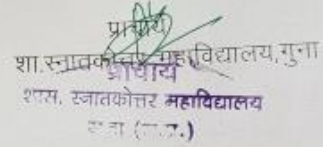 प्राचार्य
शा.स्नातकोत्तर महाविद्यालय,गुना
प्राचार्य
शास. स्नातकोत्तर महाविद्यालय